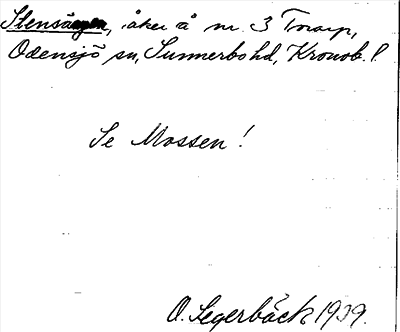 Stensången, åker å nr. 3 Torarp,
Odensjö sn, Sunnerbo hd, Kronob. l.
Se Mossen!
O. Segerbäck 1939.